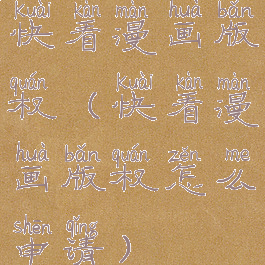 kuài kàn màn huà bǎn
快看漫画版
quán kuài kàn màn
权（快看漫
huà bǎn quán zěn me
画版权怎么
shēn qǐng
申请）